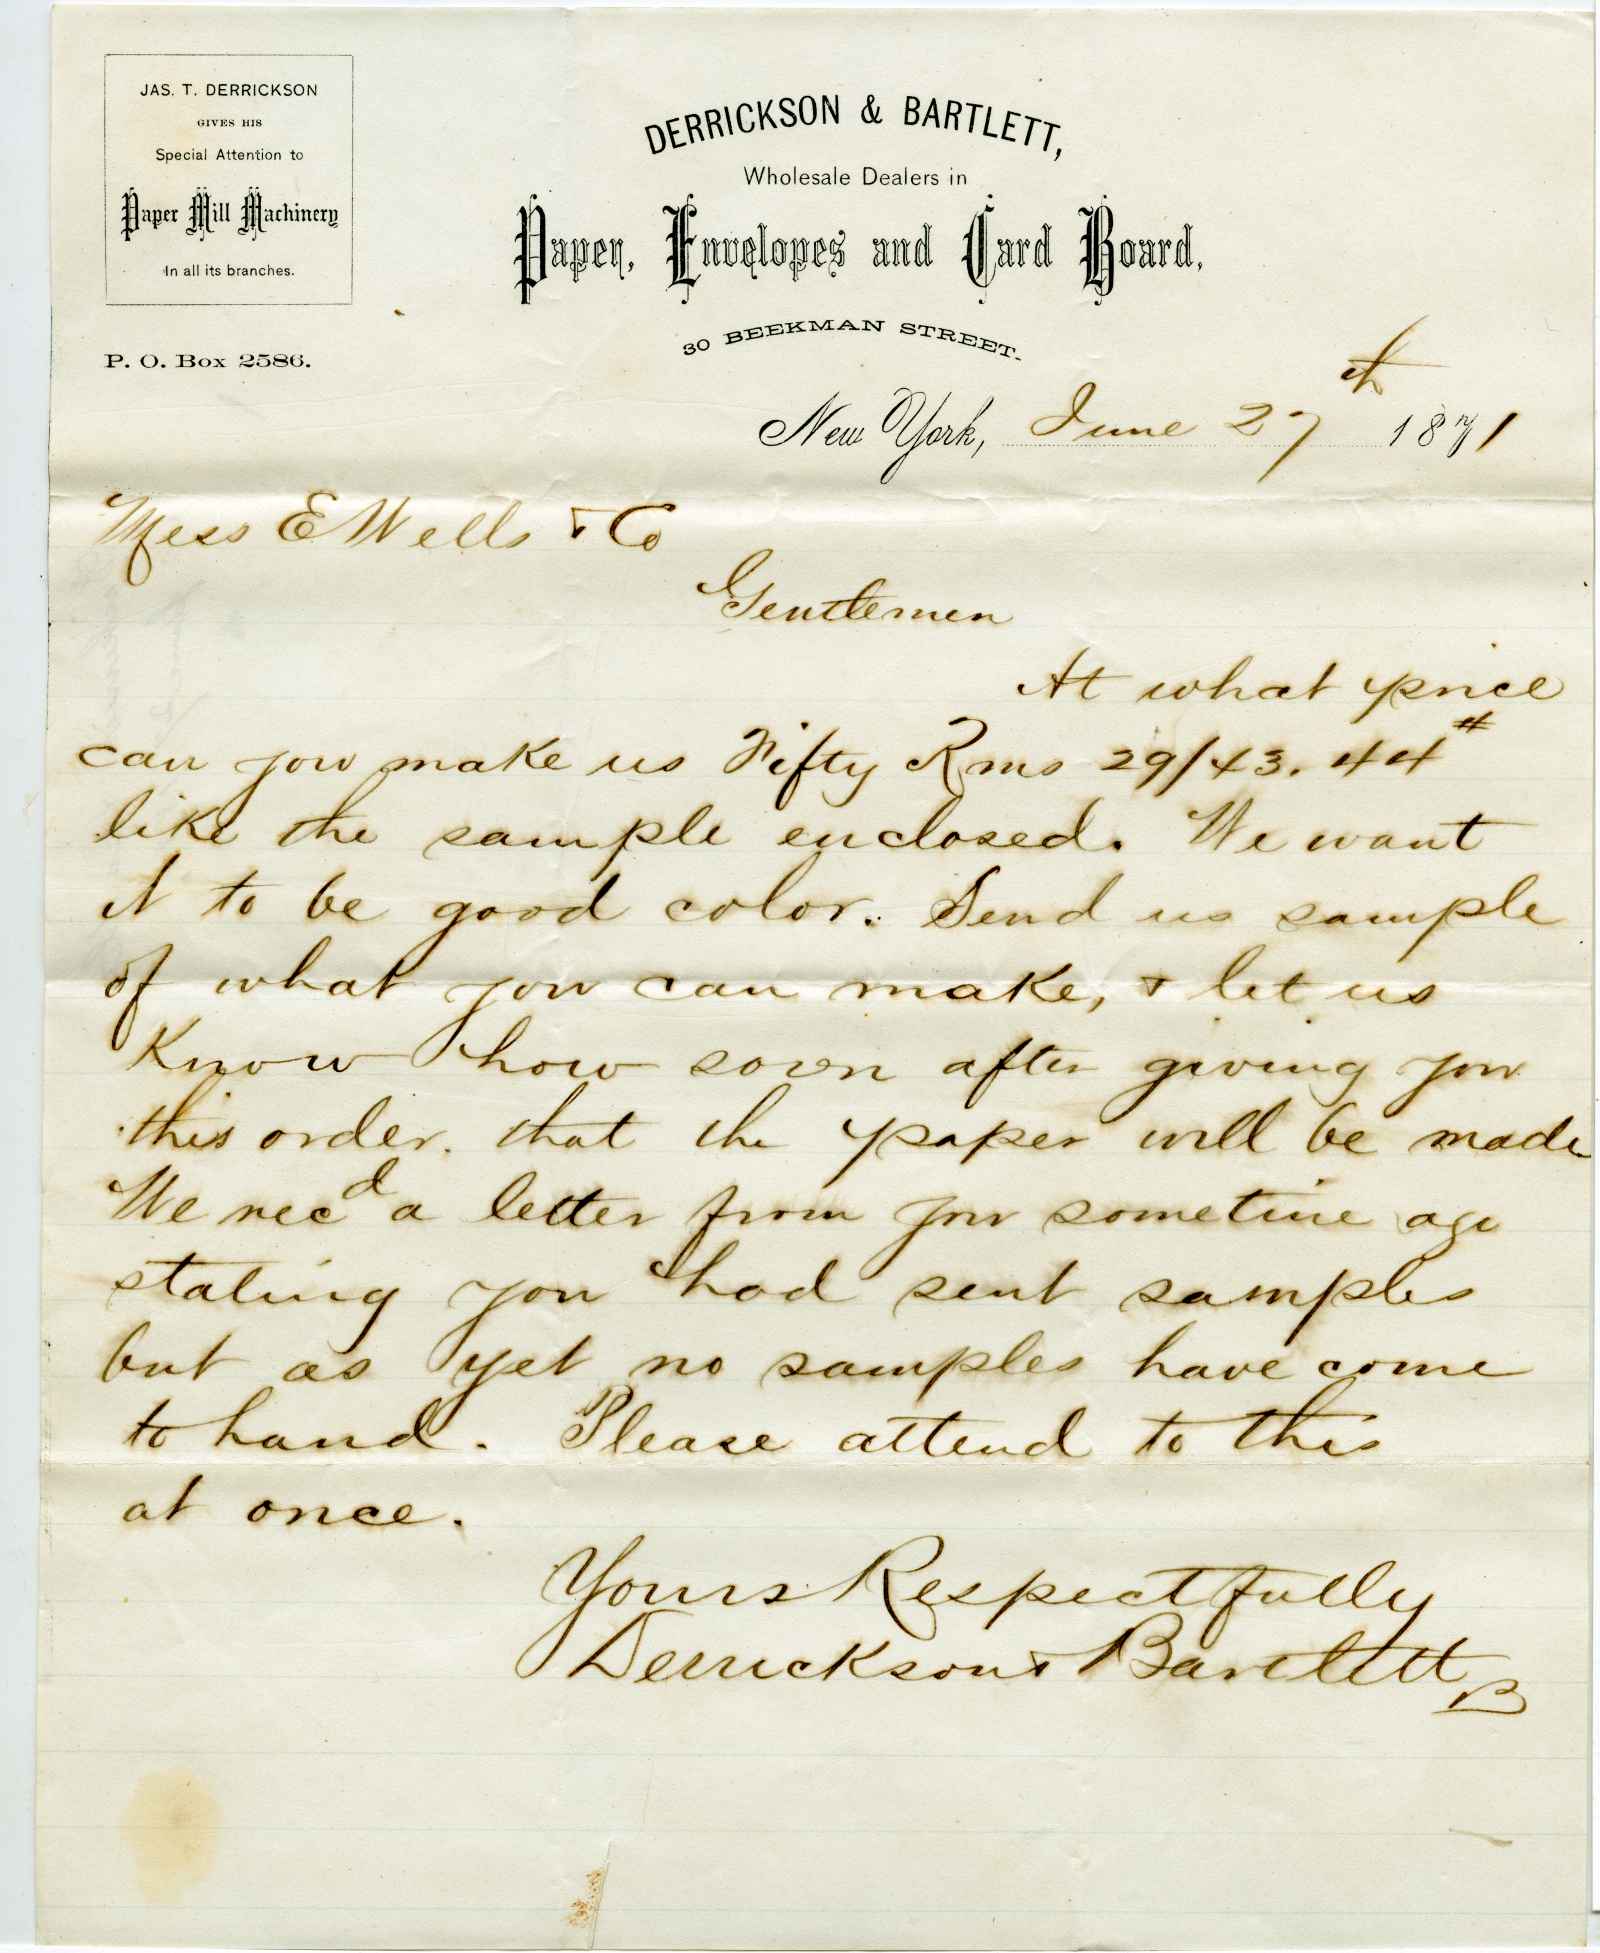 JAS. T. DERRICKSON
GIVES HIS
Special Attention to
Paper Mill Machinery
In all its branches.
P. O. Box 2586.
DERRICKSON & BARTLETT,
Wholesale Dealers in
Paper, Envelopes and Card Board,
30 BEEKMAN STREET.
New York, June 27th 1871
Mess E Wells & Co
Gentlemen
At what price
can you make us Fifty Rms 29/43. 44#
like the sample enclosed. We want
it to be good color. Send us sample
of what you can make, & let us
Know how soon after giving you
this order. that the paper will be made
We recd a letter from you sometime ago
stating you had sent samples
but as yet no samples have come
to hand. Please attend to this
at once.
Yours Respectfully
Derrickson & Bartlett
B